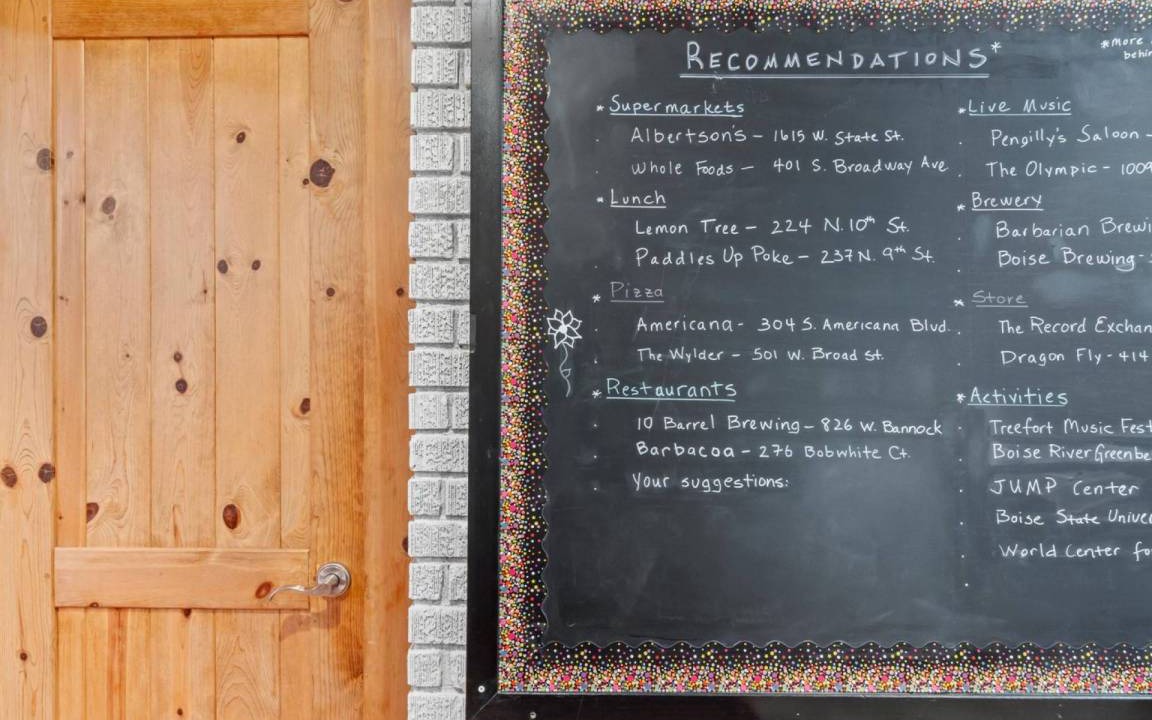 RECOMMENDATIONS*
*more
behin
*Supermarkets
. Albertson's - 1615 W. State St.
. Whole Foods - 401 S. Broadway Ave
*Lunch
Lemon Tree - 224 N. 10th St.
. Paddles Up Poke - 237 N. 9th St.
*Pizza
. Americana - 304 S. Americana Blvd.
. The Wylder - 501 W. Broad St.
*Restaurants
. 10 Barrel Brewing - 826 W. Bannock
. Barbacoa - 276 Bobwhite Ct.
. Your suggestions:
*Live Music
. Pengilly's Saloon -
. The Olympic - 1009
*Brewery
Barbarian Brewi
. Boise Brewing -
*Store
. The Record Exchan
. Dragon Fly - 414
*Activities
. Treefort Music Fest
. Boise River Greenbe
. JUMP Center
. Boise State Univer
. World Center fo
.